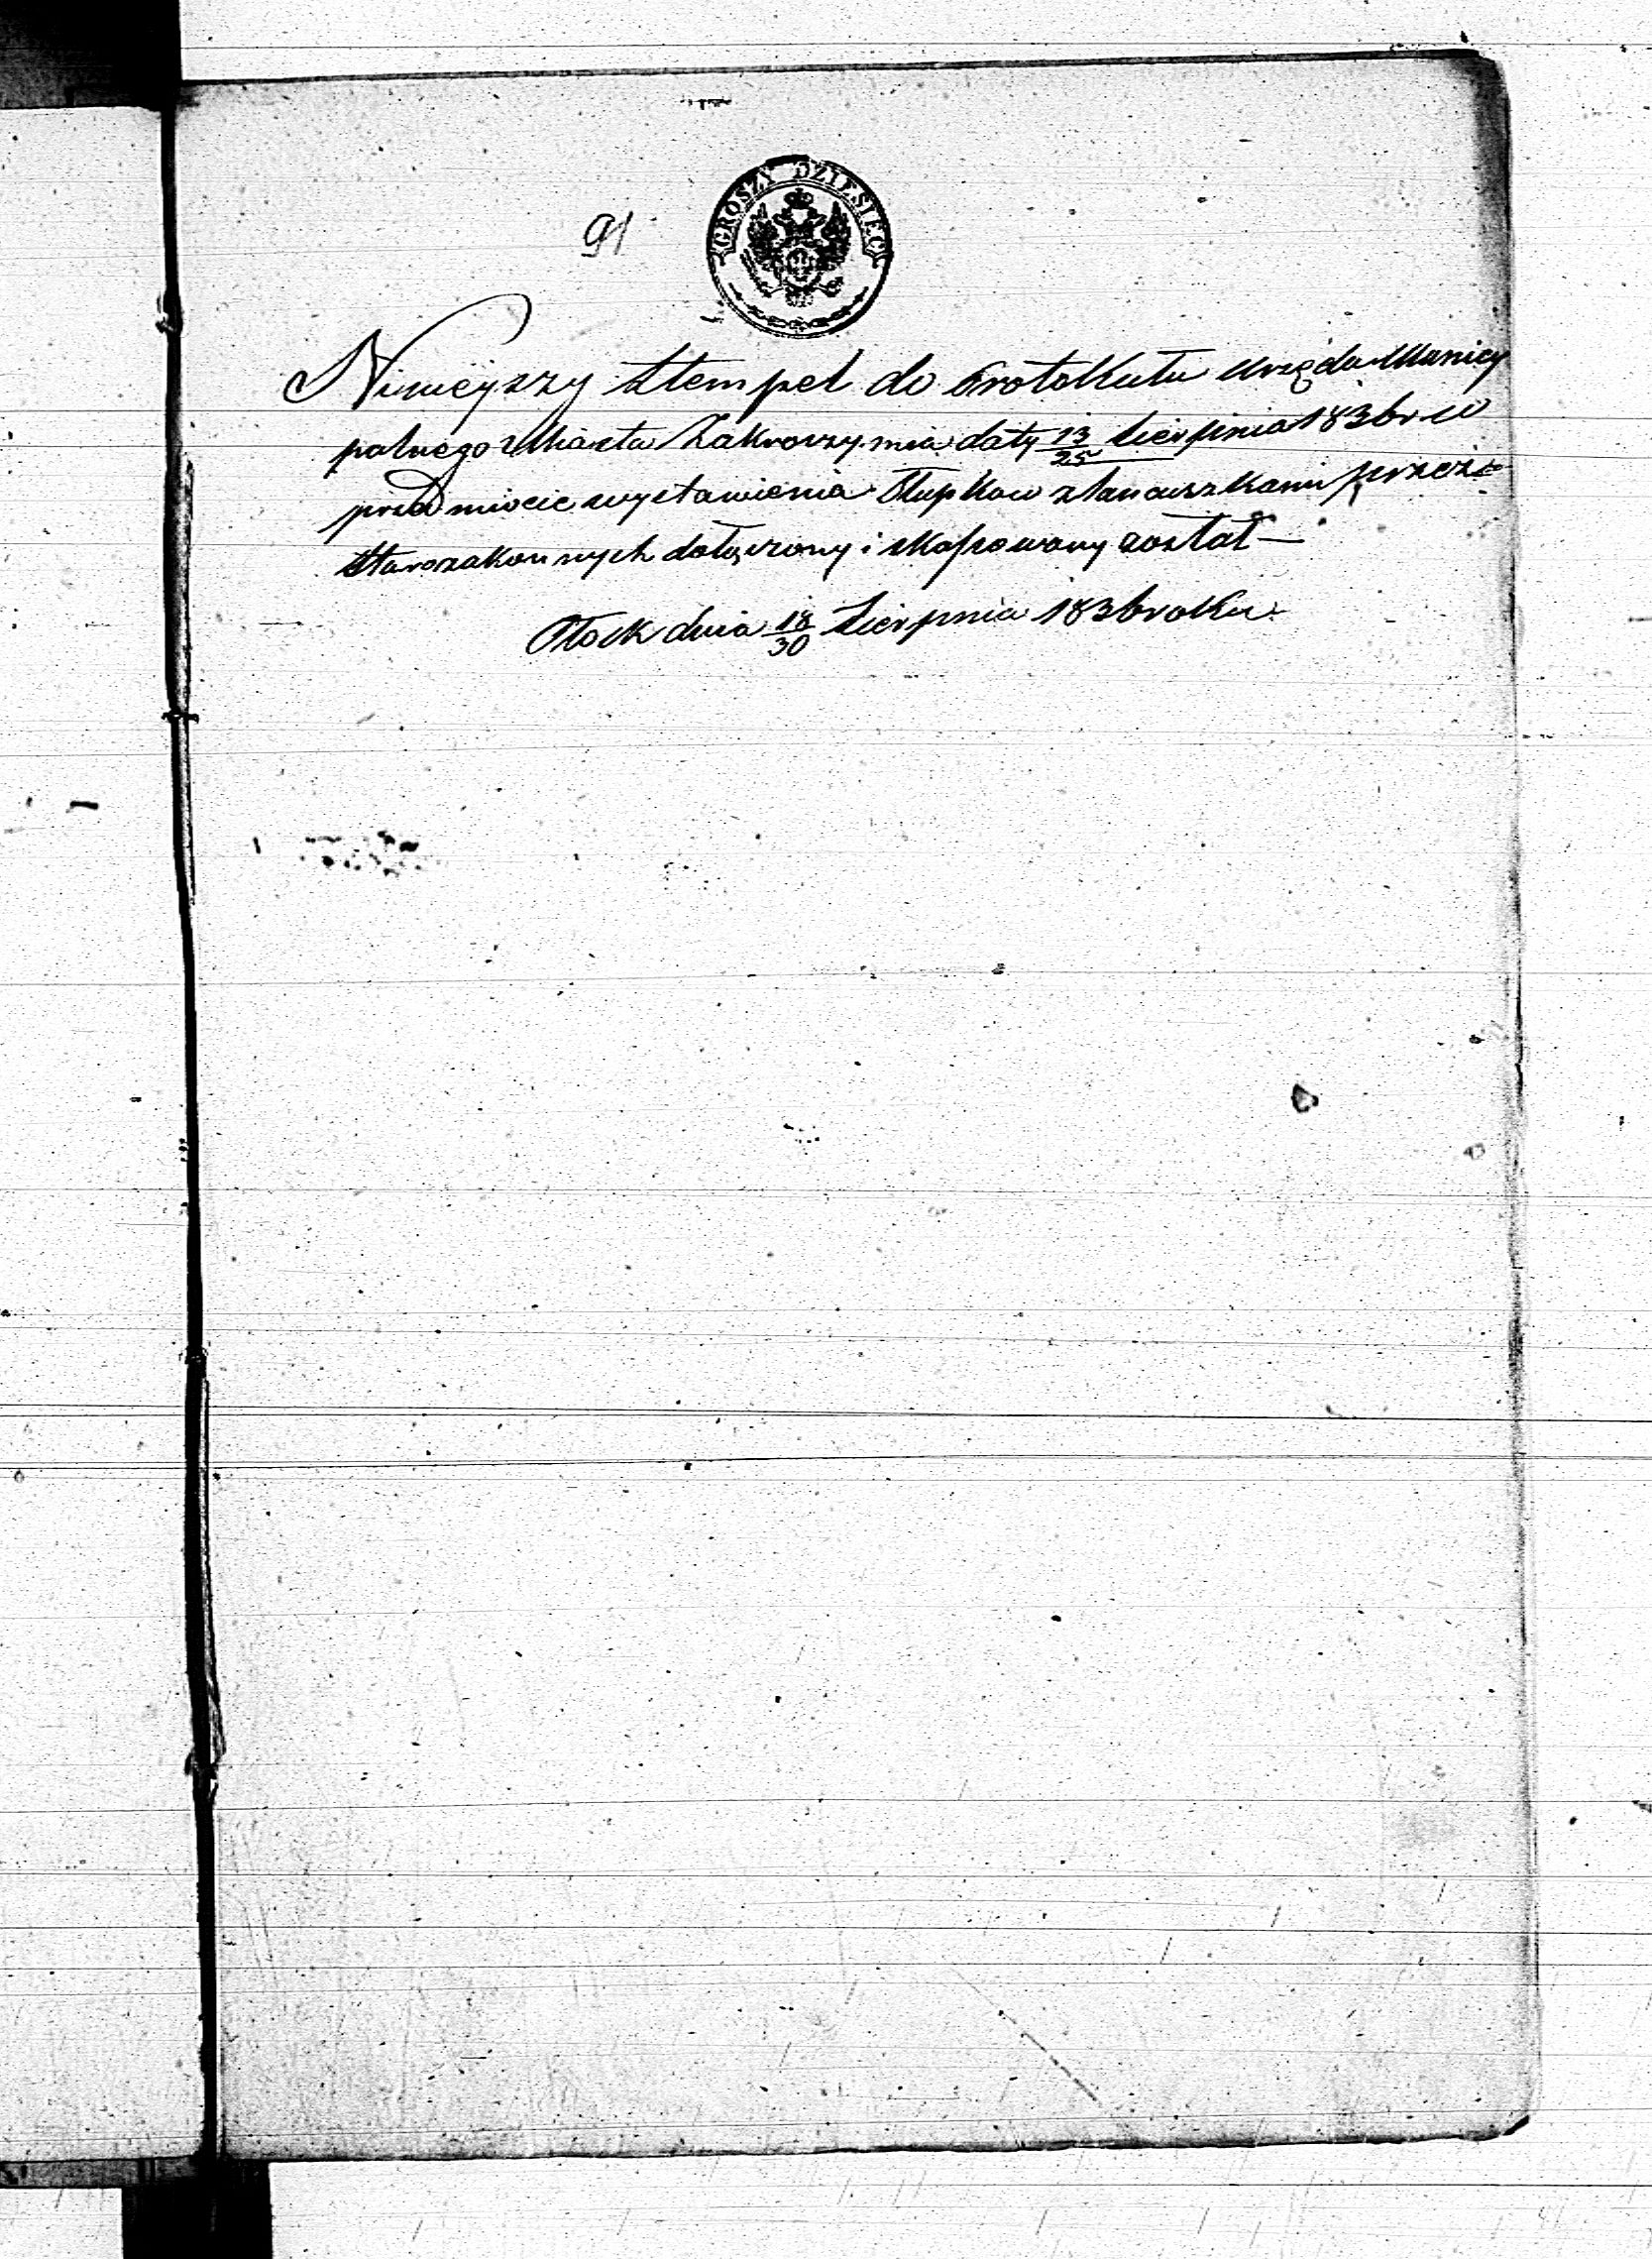 91
GROSZY DZIESIEC
Ninieyszy Stempel do Protokułu Urzędu Municy
palnego Miasta Zakroczymia daty 13/25 Sierpnia 1836 r. w
przedmiocie wystawienia Słupkow z łancuszkami przez
Starozakonnych dołączony i skasowany został —
Płock dnia 18/30 Sierpnia 1836 roku.